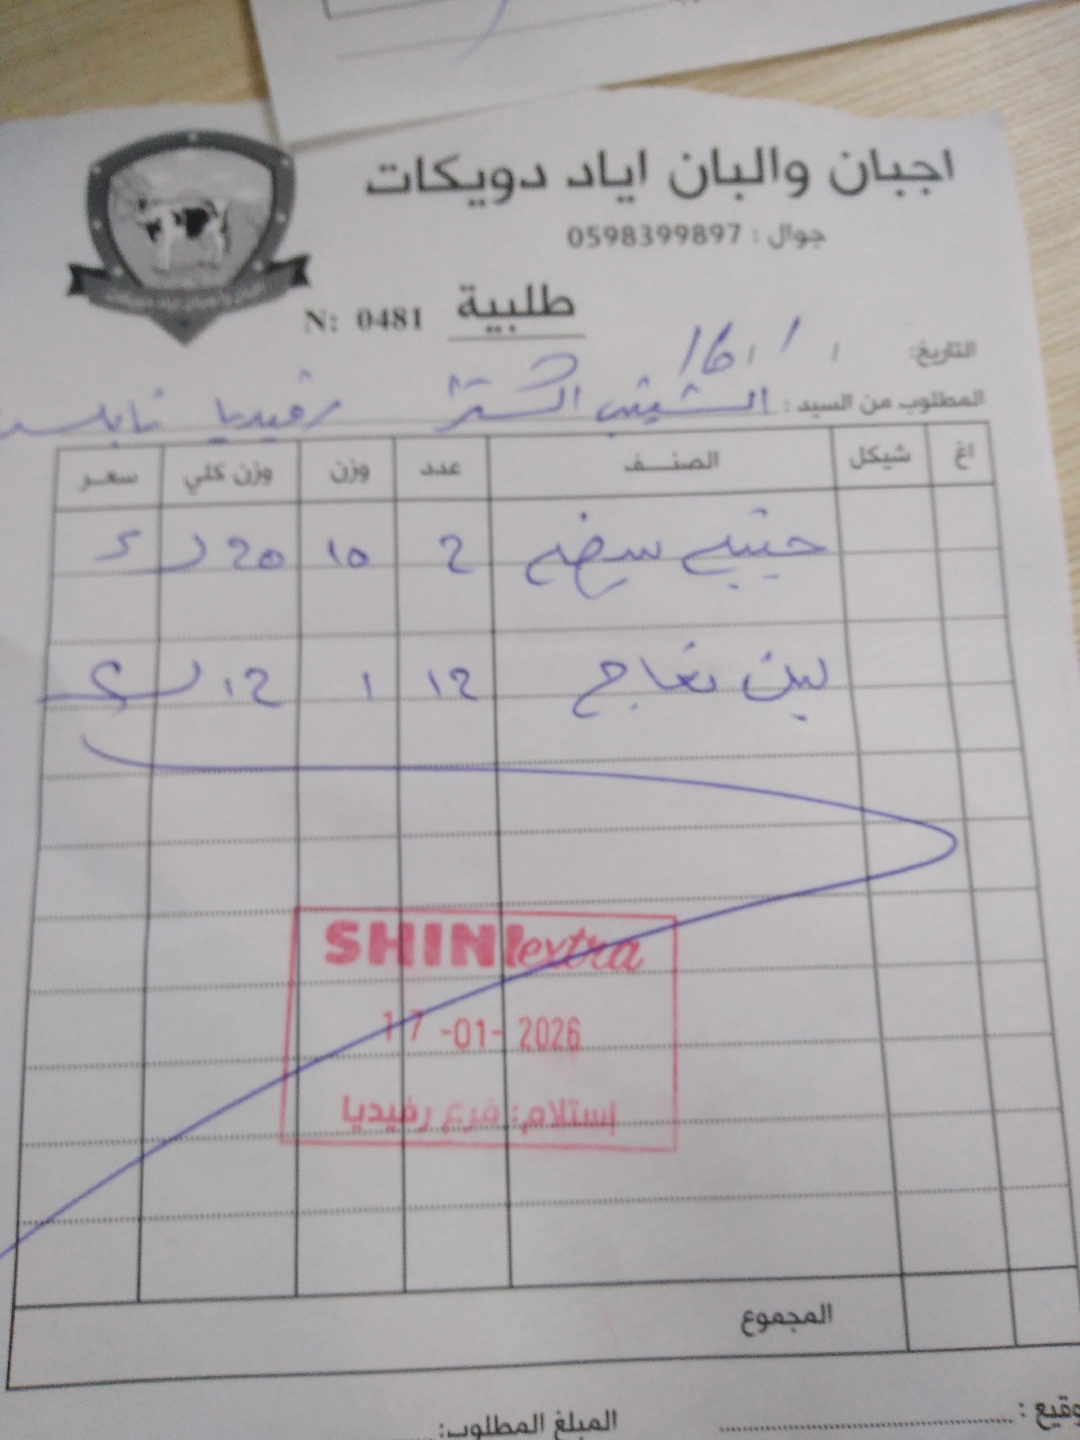 اجبان والبان اياد دويكات
جوال : 0598399897
طلبية
N: 0481
التاريخ: / / 16/1
المطلوب من السيد : الشيني اكسترا رفيديا نابلس
اغ شيكل الصنف عدد وزن وزن كلي سعر
سيخه 2 10 20
لبن نعاج 12 1 12
SHINI extra
17-01-2026
إستلام: فرع رفيديا
المجموع
المبلغ المطلوب:
وقيع :